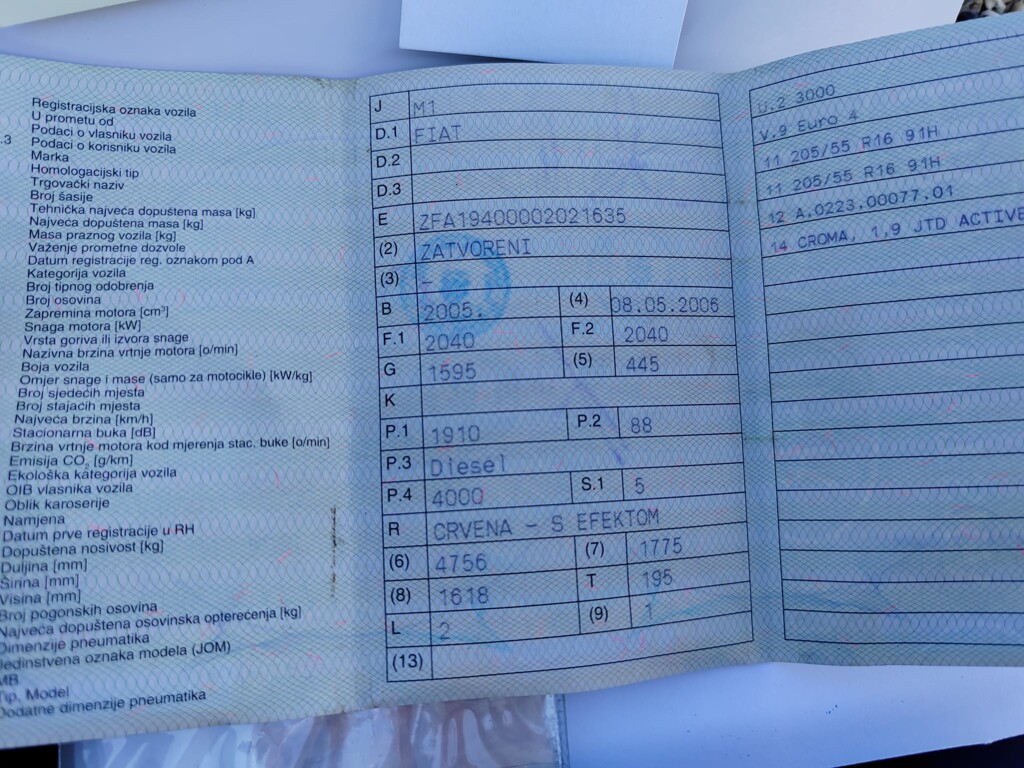 .3
Registracijska oznaka vozila
U prometu od
Podaci o vlasniku vozila
Podaci o korisniku vozila
Marka
Homologacijski tip
Trgovački naziv
Broj šasije
Tehnička najveća dopuštena masa [kg]
Najveća dopuštena masa [kg]
Masa praznog vozila [kg]
Važenje prometne dozvole
Datum registracije reg. oznakom pod A
Kategorija vozila
Broj tipnog odobrenja
Broj osovina
Zapremina motora [cm³]
Snaga motora [kW]
Vrsta goriva ili izvora snage
Nazivna brzina vrtnje motora [o/min]
Boja vozila
Omjer snage i mase (samo za motocikle) [kW/kg]
Broj sjedećih mjesta
Broj stajaćih mjesta
Najveća brzina [km/h]
Stacionarna buka [dB]
Brzina vrtnje motora kod mjerenja stac. buke [o/min]
Emisija CO₂ [g/km]
Ekološka kategorija vozila
OIB vlasnika vozila
Oblik karoserije
Namjena
Datum prve registracije u RH
Dopuštena nosivost [kg]
Duljina [mm]
Širina [mm]
Visina [mm]
Broj pogonskih osovina
Najveća dopuštena osovinska opterećenja [kg]
Dimenzije pneumatika
Jedinstvena oznaka modela (JOM)
MB
Tip, Model
Dodatne dimenzije pneumatika
J M1
D.1 FIAT
D.2
D.3
E ZFA19400002021635
(2) ZATVORENI
(3) –
B 2005. (4) 08.05.2006
F.1 2040 F.2 2040
G 1595 (5) 445
K
P.1 1910 P.2 88
P.3 Diesel
P.4 4000 S.1 5
R CRVENA – S EFEKTOM
(6) 4756 (7) 1775
(8) 1618 T 195
L 2 (9) 1
(13)
U.2 3000
V.9 Euro 4
11 205/55 R16 91H
11 205/55 R16 91H
12 A.0223.00077.01
14 CROMA, 1,9 JTD ACTIVE